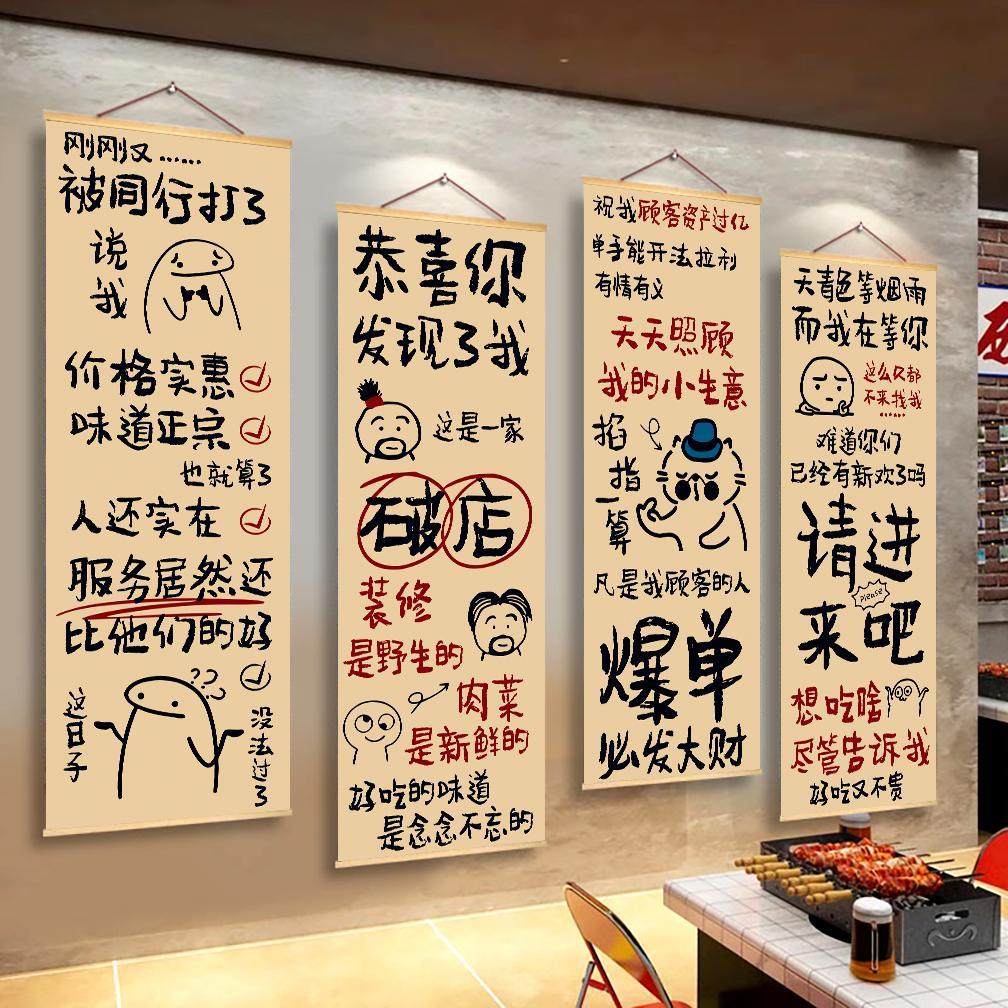 刚刚又……
被同行打了
说我
价格实惠
味道正宗
也就算了
人还实在
服务居然还
比他们的好
??
这日子
没法过了
恭喜你
发现了我
这是一家
破店
装修
是野生的
肉菜
是新鲜的
好吃的味道
是念念不忘的
祝我顾客资产过亿
单手能开法拉利
有情有义
天天照顾
我的小生意
掐指一算
凡是我顾客的人
爆单
必发大财
天青色等烟雨
而我在等你
这么久都
不来找我
……
难道你们
已经有新欢了吗
请进
please
来吧
想吃啥
尽管告诉我
好吃又不贵